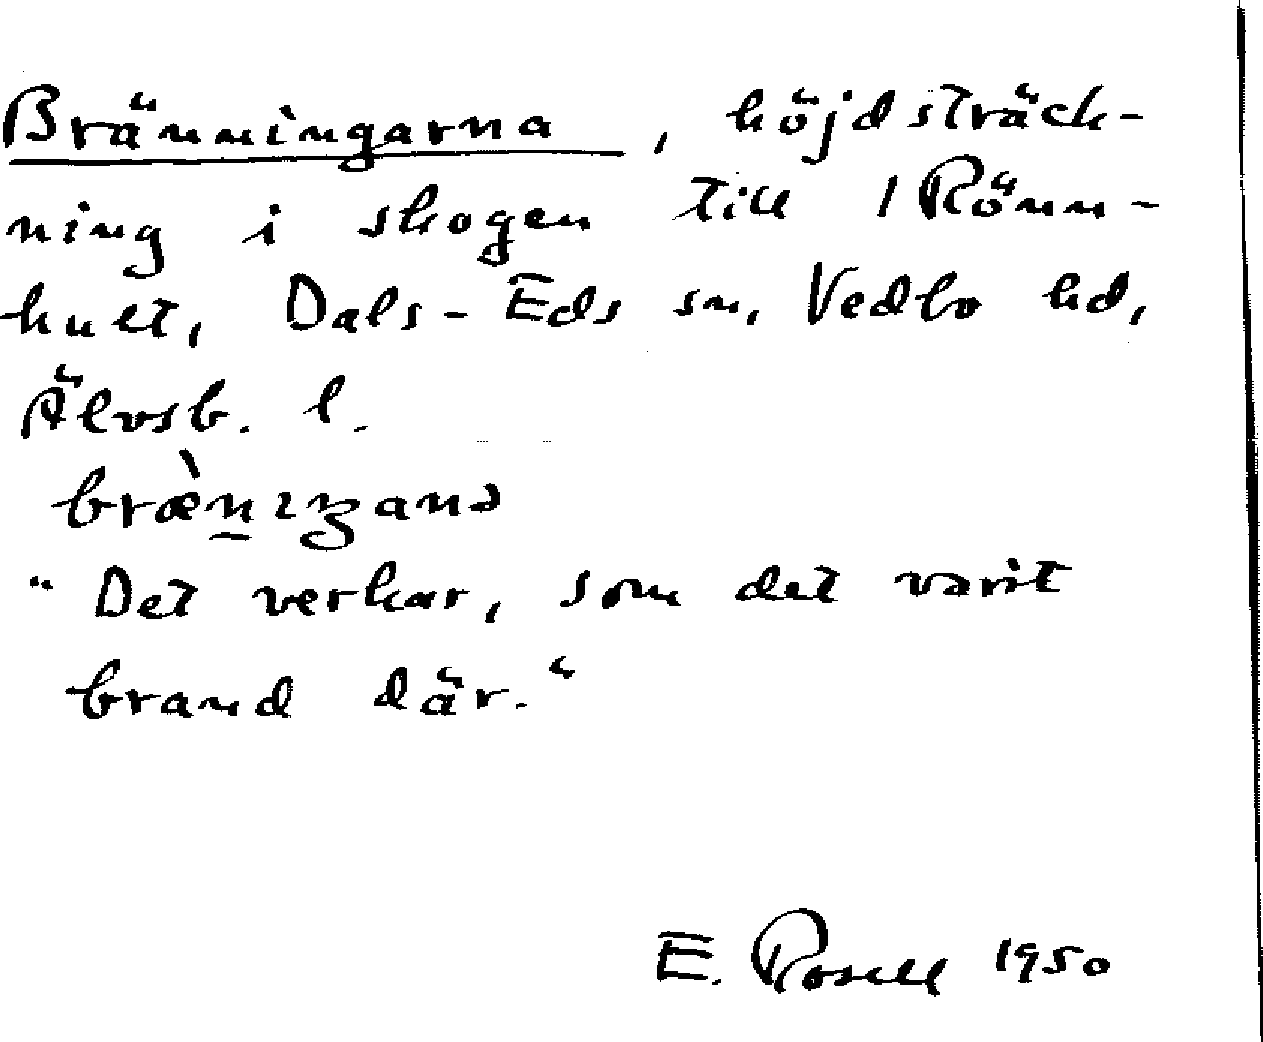 Bränningarna, höjdsträck-
ning i skogen till 1 Rönn-
hult, Dals-Eds sn, Vedbo hd,
Älvsb. l.
"Det verkar, som det varit
brand där."
E. Rosell 1950